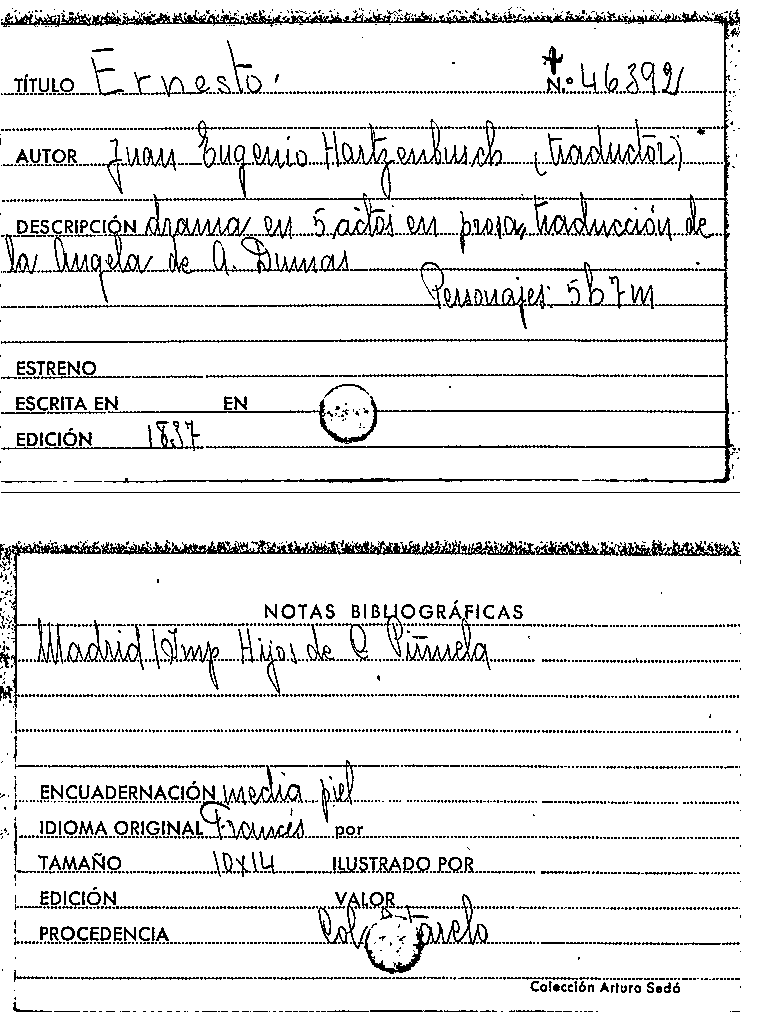 TÍTULO Ernesto.
N.º 46392
AUTOR Juan Eugenio Hartzenbusch (traductor)
DESCRIPCIÓN drama en 5 actos en prosa, traducción de
la Angela de A. Dumas
Personajes: 5h 7m
ESTRENO
ESCRITA EN EN
EDICIÓN 1837
NOTAS BIBLIOGRÁFICAS
Madrid / Imp Hijos de C Piñuela
ENCUADERNACIÓN media piel
IDIOMA ORIGINAL Francés por
TAMAÑO 10x14 ILUSTRADO POR
EDICIÓN VALOR
PROCEDENCIA
Colección Arturo Sedó